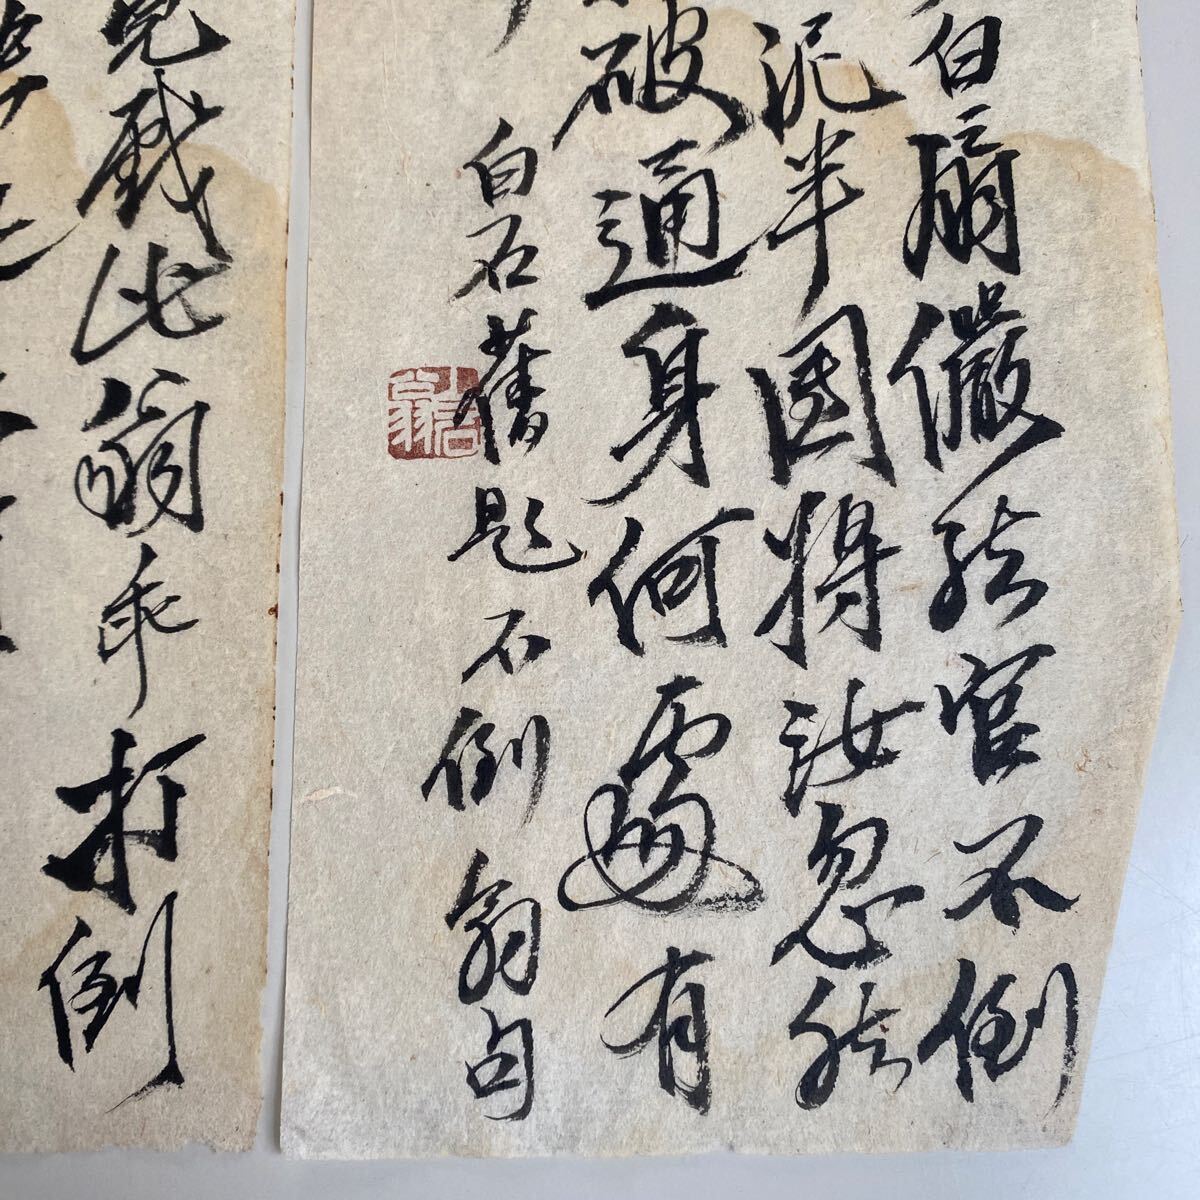 白扇儼然官不倒
泥半團將汝忽然
破通身何處有
白石舊題不倒翁句
兒戲比翁年打倒